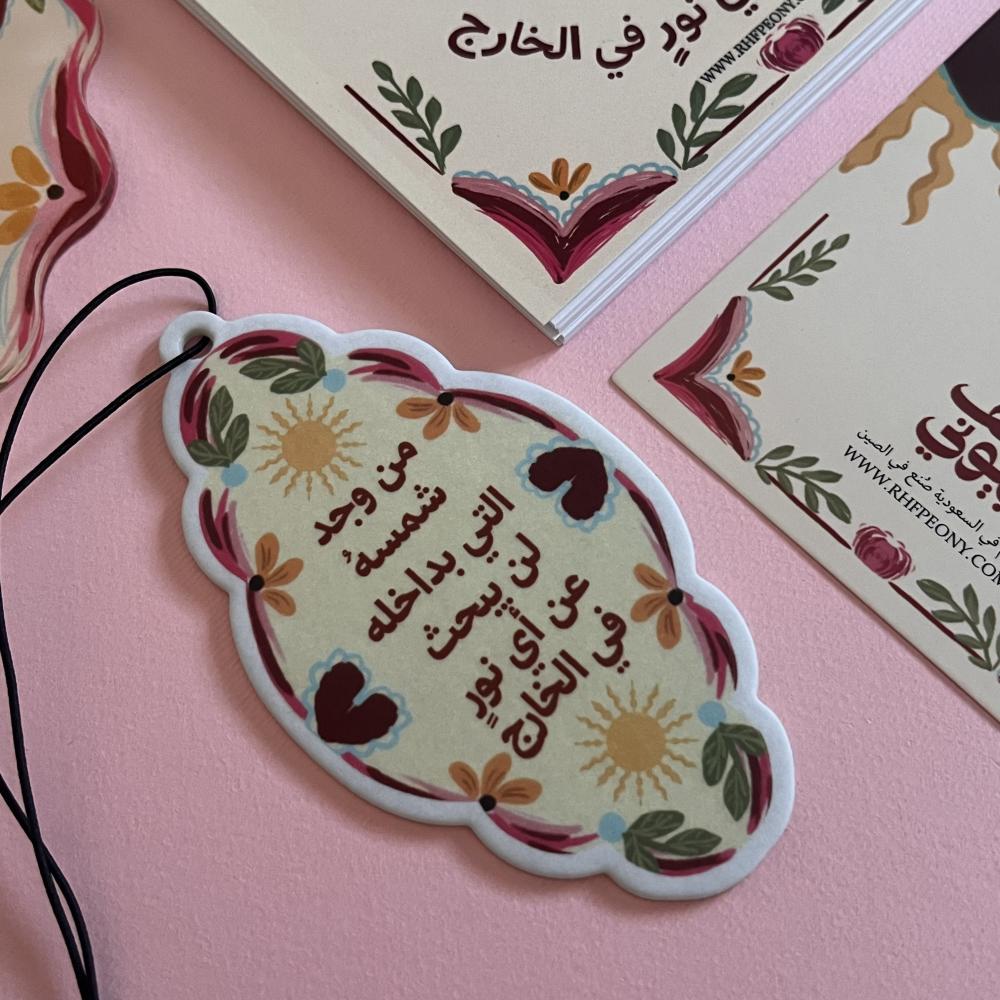 نورٍ في الخارج
WWW.RHFPEONY.
من وجد
شمسهُ
التي بداخله
لن يبحث
عن أي نورٍ
في الخارج
في السعودية صُنع في الصين
WWW.RHFPEONY.COM